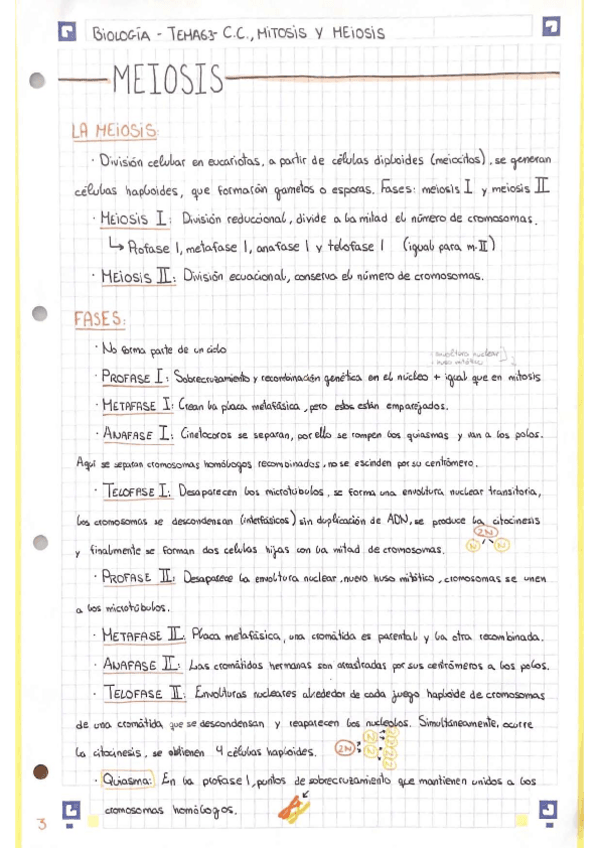 BIOLOGÍA - TEMA63- C.C., MITOSIS Y MEIOSIS
MEIOSIS
LA MEIOSIS:
· División celular en eucariotas, a partir de células diploides (meiocitos), se generan
células haploides, que formarán gametos o esporas. Fases: meiosis I y meiosis II
· MEIOSIS I: División reduccional, divide a la mitad el número de cromosomas.
↳ Profase I, metafase I, anafase I y telofase I (igual para m.II)
· MEIOSIS II: División ecuacional, conserva el número de cromosomas.
FASES:
· No forma parte de un ciclo
envoltura nuclear
huso mitótico
· PROFASE I: Sobrecruzamiento y recombinación genética en el núcleo + igual que en mitosis
· METAFASE I: Crean la placa metafásica, pero estos están emparejados.
· ANAFASE I: Cinetocoros se separan, por ello se rompen los quiasmas y van a los polos.
Aquí se separan cromosomas homólogos recombinados, no se escinden por su centrómero.
· TELOFASE I: Desaparecen los microtúbulos, se forma una envoltura nuclear transitoria,
los cromosomas se descondensan (interfásicos) sin duplicación de ADN, se produce la citocinesis
2N
y finalmente se forman dos celulas hijas con la mitad de cromosomas.
N N
· PROFASE II: Desaparece la envoltura nuclear, nuevo huso mitótico, cromosomas se unen
a los microtúbulos.
· METAFASE II: Placa metafásica, una cromátida es parental y la otra recombinada.
· ANAFASE II: Las cromátidas hermanas son arrastradas por sus centrómeros a los polos.
· TELOFASE II: Envolturas nucleares alrededor de cada juego haploide de cromosomas
de una cromátida que se descondensan y reaparecen los nucleolos. Simultáneamente, ocurre
la citocinesis, se obtienen 4 células haploides. 2N
· Quiasma: En la profase I, puntos de sobrecruzamiento que mantienen unidos a los
cromosomas homólogos.
3